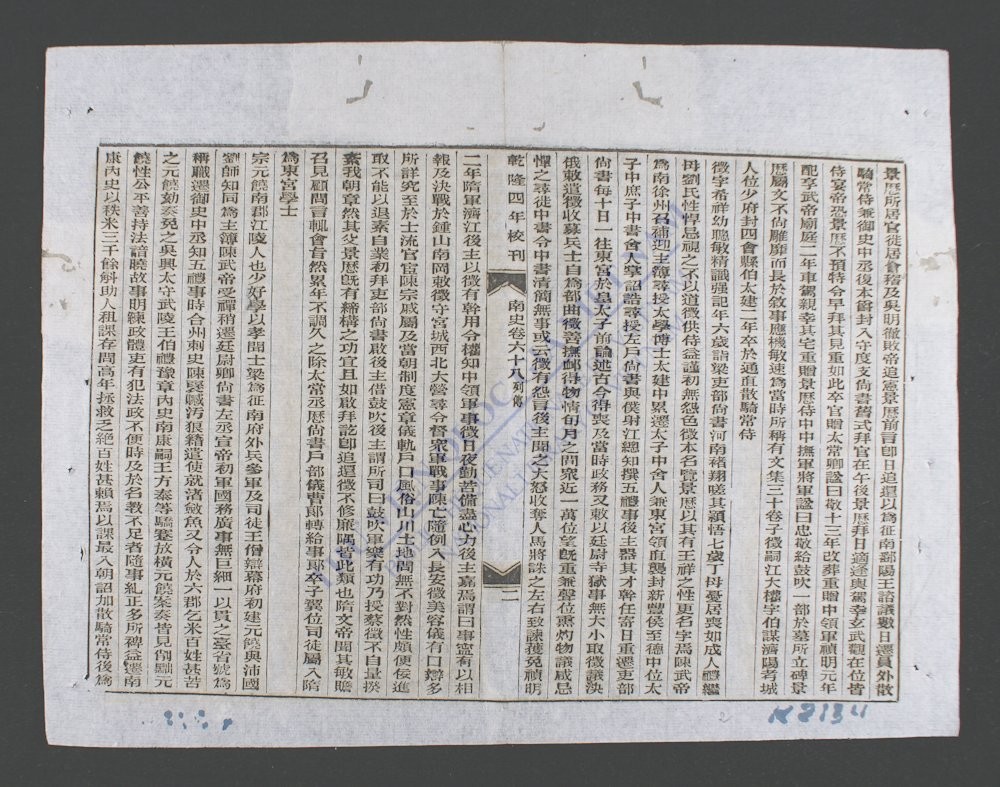 景歷所居官徒居會稽及吳明徹敗帝追憶景歷前言即日追還以為征南鄱陽王諮議數日遷員外散
騎常侍兼御史中丞復本爵封入守度支尚書舊式拜官在午後景歷拜日適逢輿駕幸玄武觀在位皆
侍宴帝恐景歷不預特令早拜其見重如此卒官贈太常卿諡曰敬十三年改葬重贈中領軍禎明元年
配享武帝廟庭二年車駕親幸其宅重贈景歷侍中中撫軍將軍諡曰忠敬給鼓吹一部於墓所立碑景
歷屬文不尚雕靡而長於敘事應機敏速為當時所稱有文集三十卷子徵嗣江大權字伯謀濟陽考城
人位少府封四會縣伯太建二年卒於通直散騎常侍
徵字希祥幼聰敏精識强記年六歲詣梁吏部尚書河南褚翔嗟其穎悟七歲丁母憂居喪如成人禮繼
母劉氏性悍忌視之不以道徵供侍益謹初無怨色徵本名覽景歷以其有王祥之性更名字焉陳武帝
為南徐州召補迎主簿尋授太學博士太建中累遷太子中舍人兼東宮領直襲封新豐侯至德中位太
子中庶子中書舍人掌詔誥尋授左戶尚書與僕射江總知撰五禮事後主器其才幹任寄日重遷吏部
尚書每十日一往東宮於皇太子前論述古今得喪及當時政務又敕以廷尉寺獄事無大小取徵議決
俄敕遣徵收募兵士自為部曲徵善撫卹得物情旬月之間衆近一萬位望既重兼聲位熏灼物議咸忌
憚之尋徙中書令中書清簡無事或云徵有怨言後主聞之大怒收奪人馬將誅之左右致諫獲免禎明
乾隆四年校刊
南史卷六十八 列傳
二
二年隋軍濟江後主以徵有幹用令權知中領軍事徵日夜勤苦備盡心力後主嘉焉謂曰事寧有以相
報及決戰於鍾山南岡敕徵守宮城西北大營尋令督衆軍戰事陳亡隨例入長安徵美容儀有口辯多
所詳究至於士流官宦陳宗戚屬及當朝制度憲章儀軌戶口風俗山川土地問無不對然性頗便佞進
取不能以退素自業初拜吏部尚書啟後主借鼓吹後主謂所司曰鼓吹軍樂有功乃授蔡徵不自量揆
紊我朝章然其父景歷既有締構之功宜且如啟拜訖即追還徵不修廉隅皆此類也隋文帝聞其敏贍
召見顧問言輒會旨然累年不調久之除太常丞歷尚書戶部儀曹郎轉給事郎卒子翼位司徒屬入隋
為東宮學士
宗元饒南郡江陵人也少好學以孝聞仕梁為征南府外兵參軍及司徒王僧辯幕府初建元饒與沛國
劉師知同為主簿陳武帝受禪稍遷廷尉卿尚書左丞宣帝初軍國務廣事無巨細一以貫之臺省號為
稱職遷御史中丞知五禮事時合州刺史陳裦贓汚狼籍遣使就渚斂魚又令人於六郡乞米百姓甚苦
之元饒劾奏免之吳興太守武陵王伯禮豫章內史南康嗣王方泰等驕蹇放橫元饒案奏皆見削黜元
饒性公平善持法諳曉故事明練政體吏有犯法政不便時及於名教不足者隨事糺正多所裨益遷南
康內史以秩米三千餘斛助人租課存問高年拯救乏絕百姓甚賴焉以課最入朝詔加散騎常侍後為